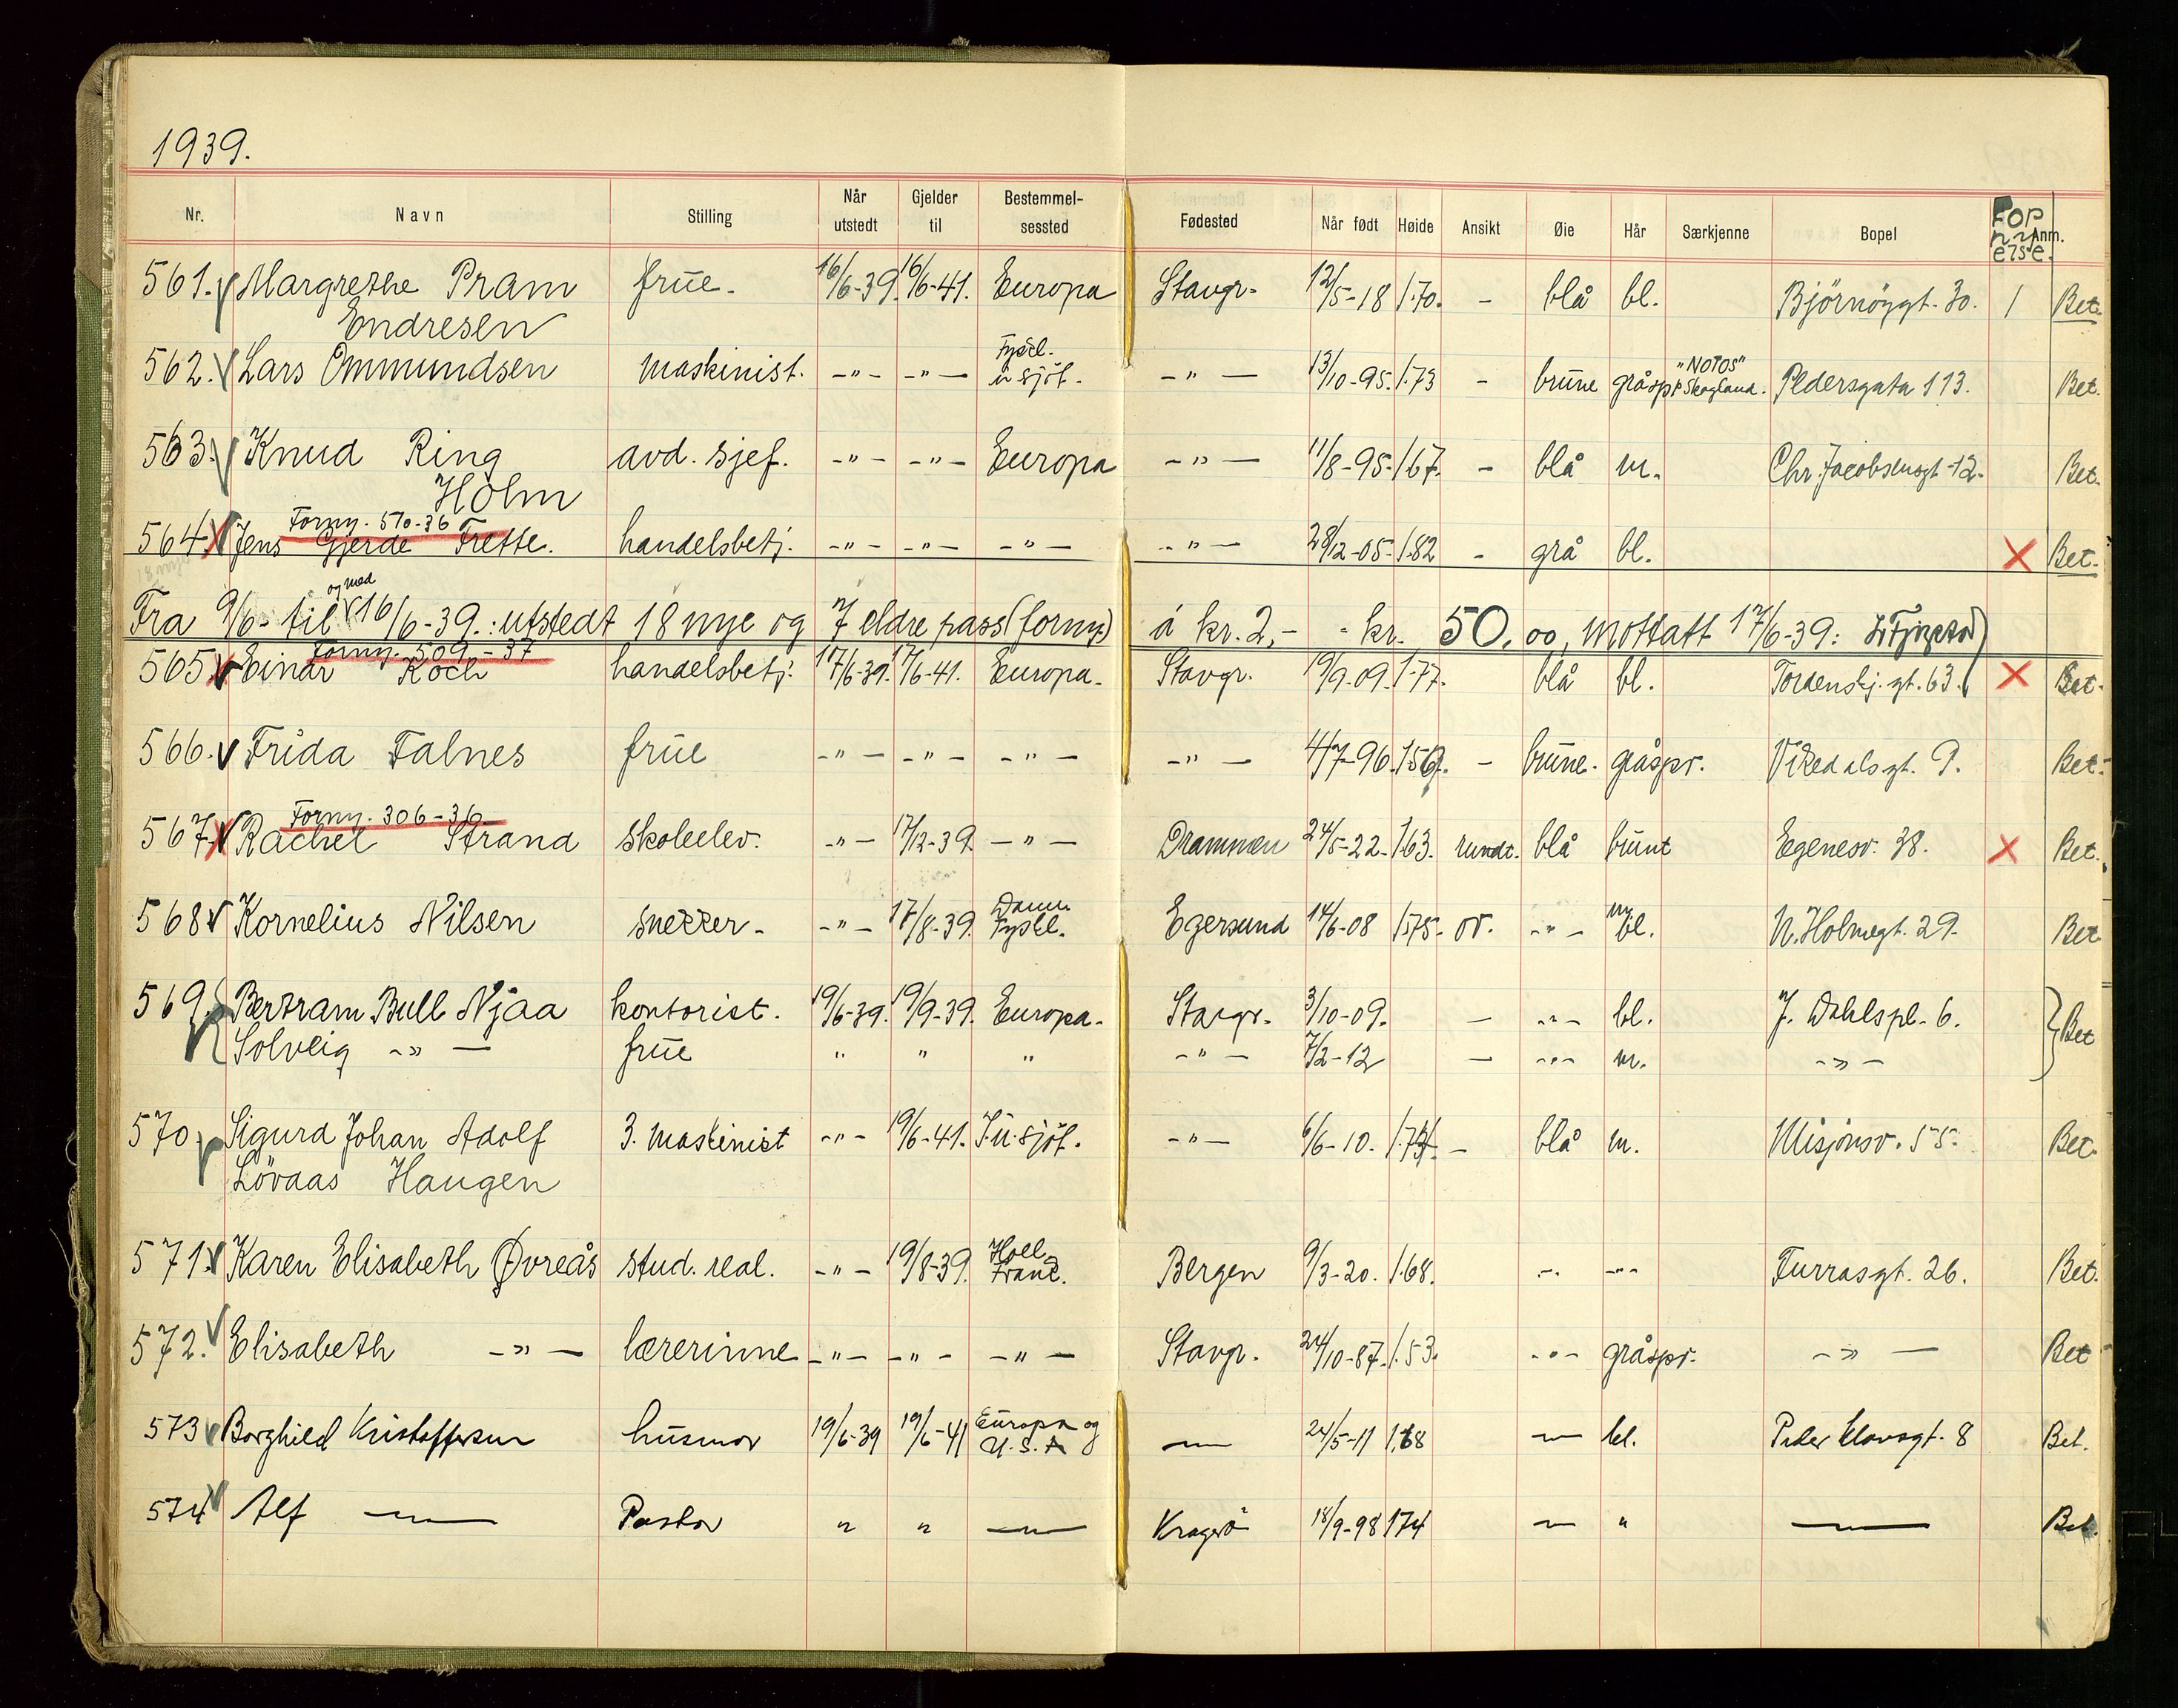 1939.
Nr. Navn Stilling Når utstedt Gjelder til Bestemmel-sessted Fødested Når født Høide Ansikt Øie Hår Særkjenne Bopel For ny else. Anm.
561. Margrethe Pram frue. 16/6-39. 16/6-41. Europa Stavgr. 12/5-18 1.70. - blå bl. Björnöygt. 30. / Bet.
Endresen
562. Lars Ommundsen maskinist. -"- -"- Tyskl. u sjöf. -"- 13/10-95. 1.73 - brune gråspr "NOTOS" Skogland. Pedersgata 113. Bet.
563. Knud Ring avd. sjef. -"- -"- Europa -"- 11/8-95. 1.67. - blå m. Chr. Jacobsensgt 12. Bet.
Holm
Forny. 510-36
564. Jens Gjerde Frette. handelsbetj. -"- -"- -"- -"- 28/12-05. 1.82 - grå bl. X Bet.
Fra 9/6- til og med 16/6-39.: utstedt 18 nye og 7 eldre pass (forny.) á kr. 2,- - kr. 50.00, mottatt 17/6-39:
Forny. 509-37
565. Einar Koch handelsbetj. 17/6-39. 17/6-41. Europa. Stavgr. 19/9-09. 1.77. blå bl. Tordenskj. gt. 63. X Bet.
566. Frida Falnes frue -"- -"- -"- -"- 4/7-96. - brune. gråspr. Vikedalsgt. 9. Bet.
Forny. 306-36
567. Rachel Strand skoleelev. -"- 17/12-39. -"- Drammen 24/5-22. 1.63. rundt. blå brunt Egenesv. 38. X Bet.
568 Kornelius Nilsen snekker. -"- 17/8-39. Danm. Tyskl. Egersund 14/6-08 1.75. ov. -"- m bl. N. Holmegt. 29. Bet
569. Bertram Bull Njaa kontorist. 19/6-39. 19/9-39. Europa. Stavgr. 3/10-09. - -"- bl. J. Dahlspl. 6. } Bet
Solveig -"- frue " " " -"- 7/2-12 - -"- m. -"-
570. Sigurd Johan Adolf 3. maskinist -"- 19/6-41. I. u. sjöf. -"- 6/6-10. - blå m. Misjonsv. 55. Bet.
Lövaas Haugen
571. Karen Elisabeth Øvreås stud. real. -"- 19/8-39. Holl. Frank. Bergen 9/3-20. 1.68. -"- -"- Furrasgt. 26. Bet.
572. Elisabeth -"- lærerinne -"- -"- -"- Stavgr. 24/10-87. 1.53. -"- gråspr. -"- Bet
573 Borghild Kristoffersen husmor 19/6-39 19/6-41 Europa og U.S.A — 24/5-11 1.68 — bl. Peder Clausgt. 8 Bet.
574 Alf — Pastor " " — Kragerö 18/9-98 174 — " — Bet.